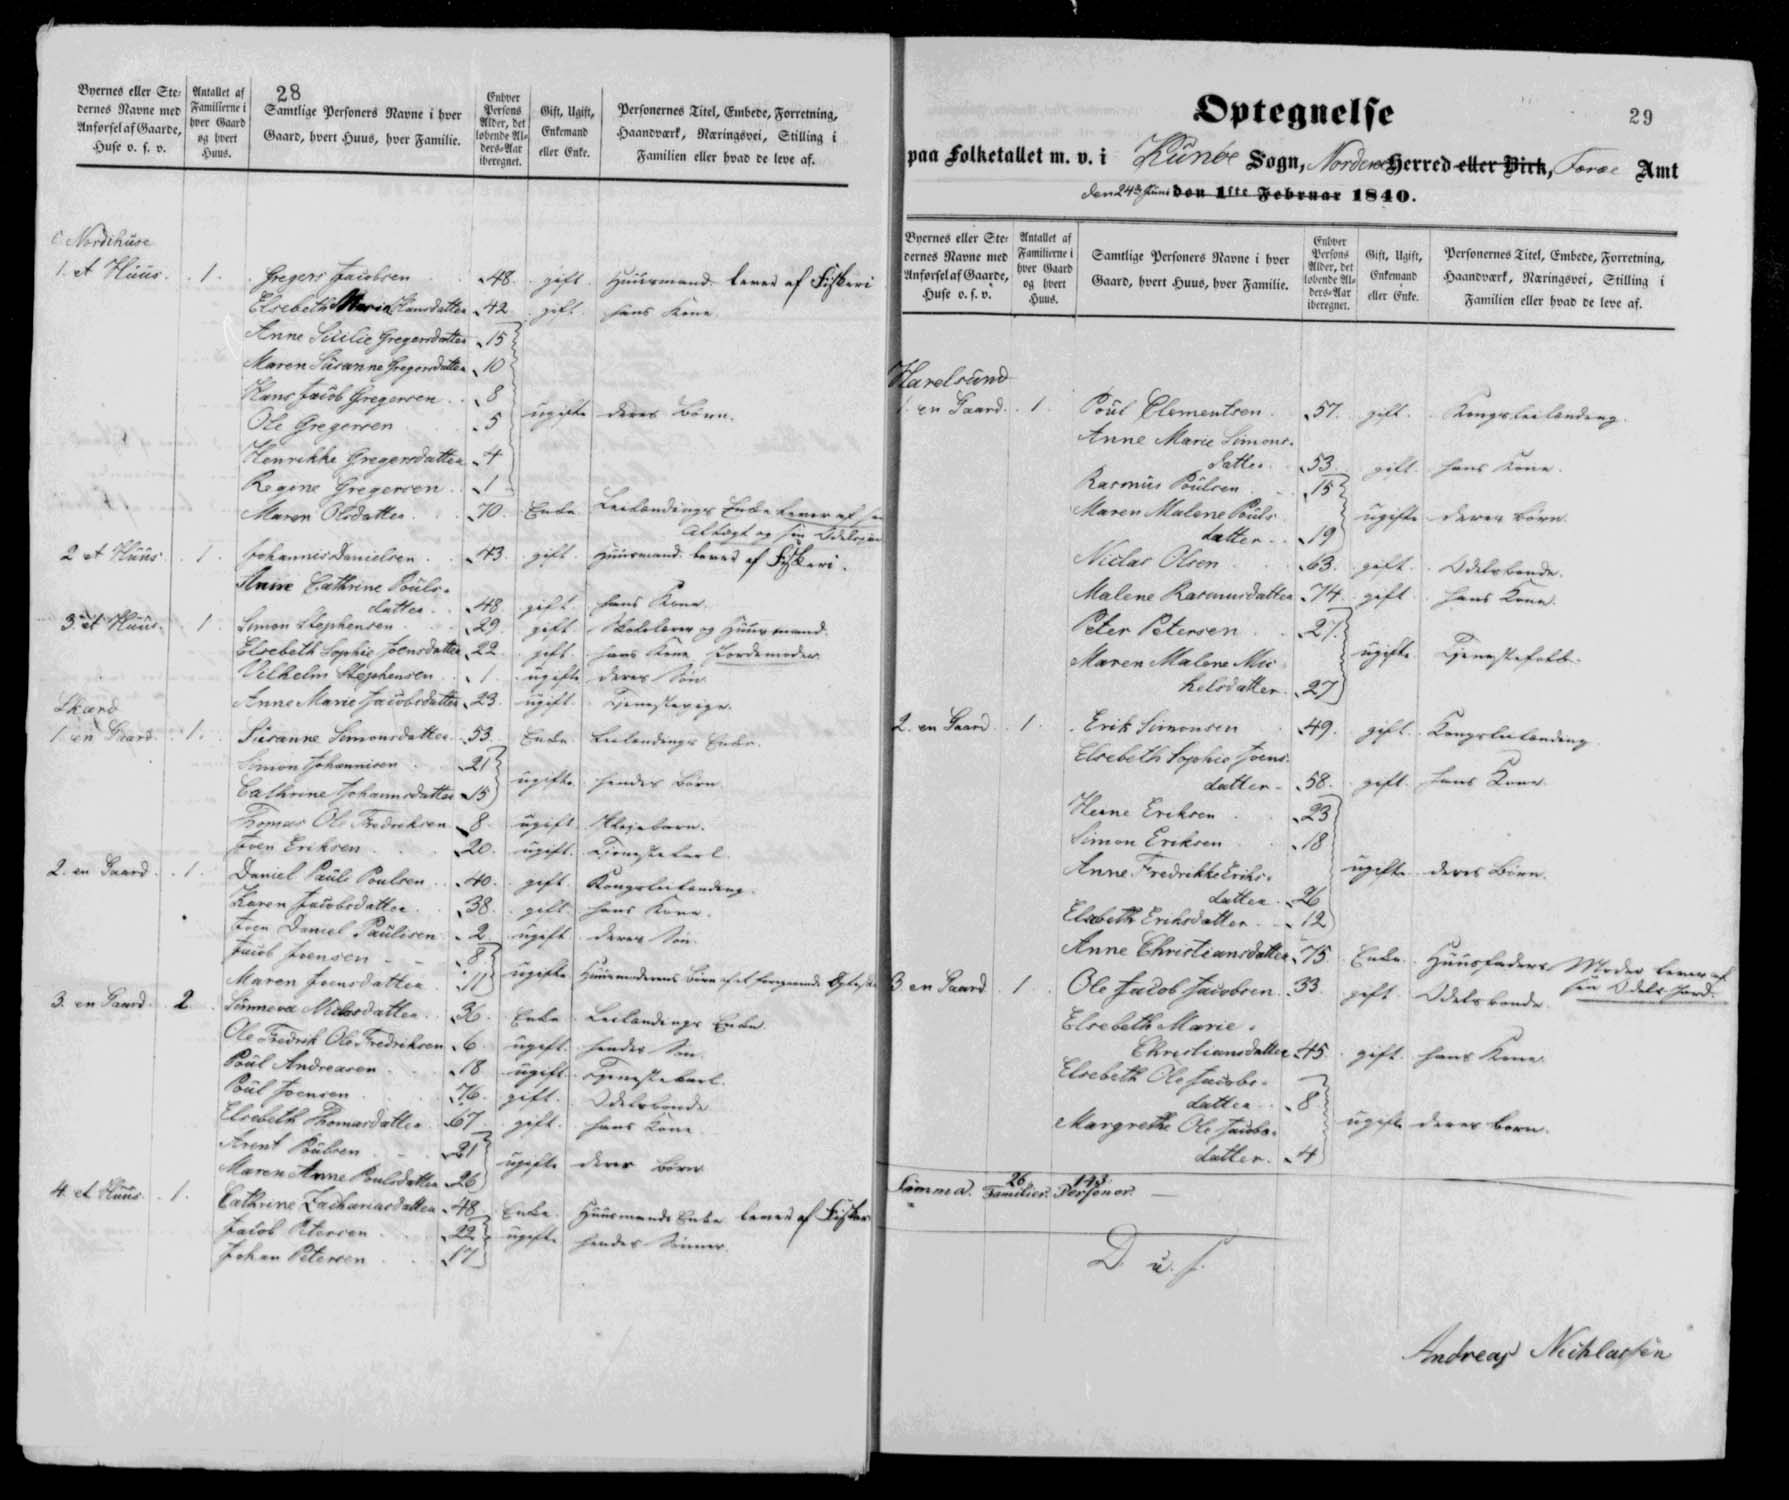 28
Byernes eller Ste-
dernes Navne med
Anførsel af Gaarde,
Huse o. s. v.
Antallet af
Familierne i
hver Gaard
og hvert
Huus.
Samtlige Personers Navne i hver
Gaard, hvert Huus, hver Familie.
Enhver
Persons
Alder, det
løbende Al-
ders-Aar
iberegnet.
Gift, Ugift,
Enkemand
eller Enke.
Personernes Titel, Embede, Forretning,
Haandværk, Næringsvei, Stilling i
Familien eller hvad de leve af.
Nordihuse
1. et Huus. 1. Gregers Jacobsen 48. gift. Huusmand. lever af Fiskeri
Elsebeth Maria Hansdatter 42 gift. hans Kone.
Anne Sicilie Gregersdatter 15
Maren Susanne Gregersdatter 10
Hans Jacob Gregersen 8
ugifte deres Børn.
Ole Gregersen 5
Henrikke Gregersdatter 4
Regine Gregersen 1
Maren Olsdatter 70. Enke Leilændings Enke lever af sin
Aftægt og sin Odelsjord
2 et Huus. 1. Johannis Danielsen 43. gift. Huusmand. lever af Fiskeri.
Anne Cathrine Pouls-
datter 48 gift. hans Kone.
3. et Huus. 1 Simon Stephensen 29. gift. Skolelærer og Huusmand.
Elsebeth Sophie Joensdatter 22. gift. hans Kone, Jordemoder
Vilhelm Stephensen 1. ugift deres Søn.
Anne Marie Jacobsdatter 23. ugift. Tjenestepige.
Skard
1. en Gaard. 1. Susanne Simonsdatter 53. Enke. Leilændings Enke.
Simon Johannisen 21
ugifte hendes Børn
Cathrine Johannisdatter 15
Thomas Ole Fredriksen 8. ugift. Pleiebarn.
Joen Eriksen 20. ugift. Tjenestekarl.
2. en Gaard. 1. Daniel Pauli Poulsen 40. gift. Kongsleilænding.
Karen Jacobsdatter 38. gift. hans Kone.
Joen Daniel Paulisen 2. ugift. deres Søn.
Jacob Joensen 8
ugifte Huusmoderens Børn af et foregaaende Ægteskab
Maren Joensdatter 11
3. en Gaard. 2. Sünneva Niclasdatter 36. Enke. Leilændings Enke
Ole Fredrik Ole Fredriksen 6. ugift. hendes Søn.
Poul Andreasen 18 ugift. Tjenestekarl.
Poul Joensen 76. gift. Odelsbonde
Elsebeth Thomasdatter 67. gift. hans Kone
Arent Poulsen 21
ugifte deres Børn
Maren Anne Poulsdatter 26
4. et Huus. 1. Cathrine Zachariasdatter 48. Enke. Huusmands Enke lever af Fiskeri
Jacob Petersen 22
ugifte hendes Sønner.
Johan Petersen 17
29
Optegnelse
paa Folketallet m. v. i Kunöe Sogn, Norderöe Herred eller Birk, Færøe Amt
den 24de Juni den 1ste Februar 1840.
Byernes eller Ste-
dernes Navne med
Anførsel af Gaarde,
Huse o. s. v.
Antallet af
Familierne i
hver Gaard
og hvert
Huus.
Samtlige Personers Navne i hver
Gaard, hvert Huus, hver Familie.
Enhver
Persons
Alder, det
løbende Al-
ders-Aar
iberegnet.
Gift, Ugift,
Enkemand
eller Enke.
Personernes Titel, Embede, Forretning,
Haandværk, Næringsvei, Stilling i
Familien eller hvad de leve af.
Harelsund
1. en Gaard. 1. Poul Clementsen 57. gift. Kongsleilænding.
Anne Marie Simons-
datter 53. gift. hans Kone.
Rasmus Poulsen 15
Maren Malene Pouls-
ugifte deres Børn.
datter 19
Niclas Olsen 63. gift. Odelsbonde.
Malene Rasmusdatter 74. gift. hans Kone.
Peter Petersen 27.
ugifte. Tjenestefolk.
Maren Malene Mic-
kelsdatter. 27
2. en Gaard 1. Erik Simonsen 49. gift. Kongsleilænding.
Elsebeth Sophie Joens-
datter 58. gift. hans Kone.
Heine Eriksen 23
Simon Eriksen 18
Anne Fredrikke Eriks-
ugifte deres Børn.
datter 26
Elsebeth Eriksdatter 12
Anne Christiansdatter 75. Enke. Huusfaders Moder lever af
sin Odels-Jord.
3. en Gaard 1 Ole Jacob Jacobsen 33. gift. Odelsbonde
Elsebeth Marie
Christiansdatter 45. gift. hans Kone.
Elsebeth Ole Jacobs-
datter 8
ugifte deres børn.
Margrethe Ole Jacobs-
datter. 4
Summa. 26 Familier. 143 Personer.
D. u. s.
Andreas Nichlassen